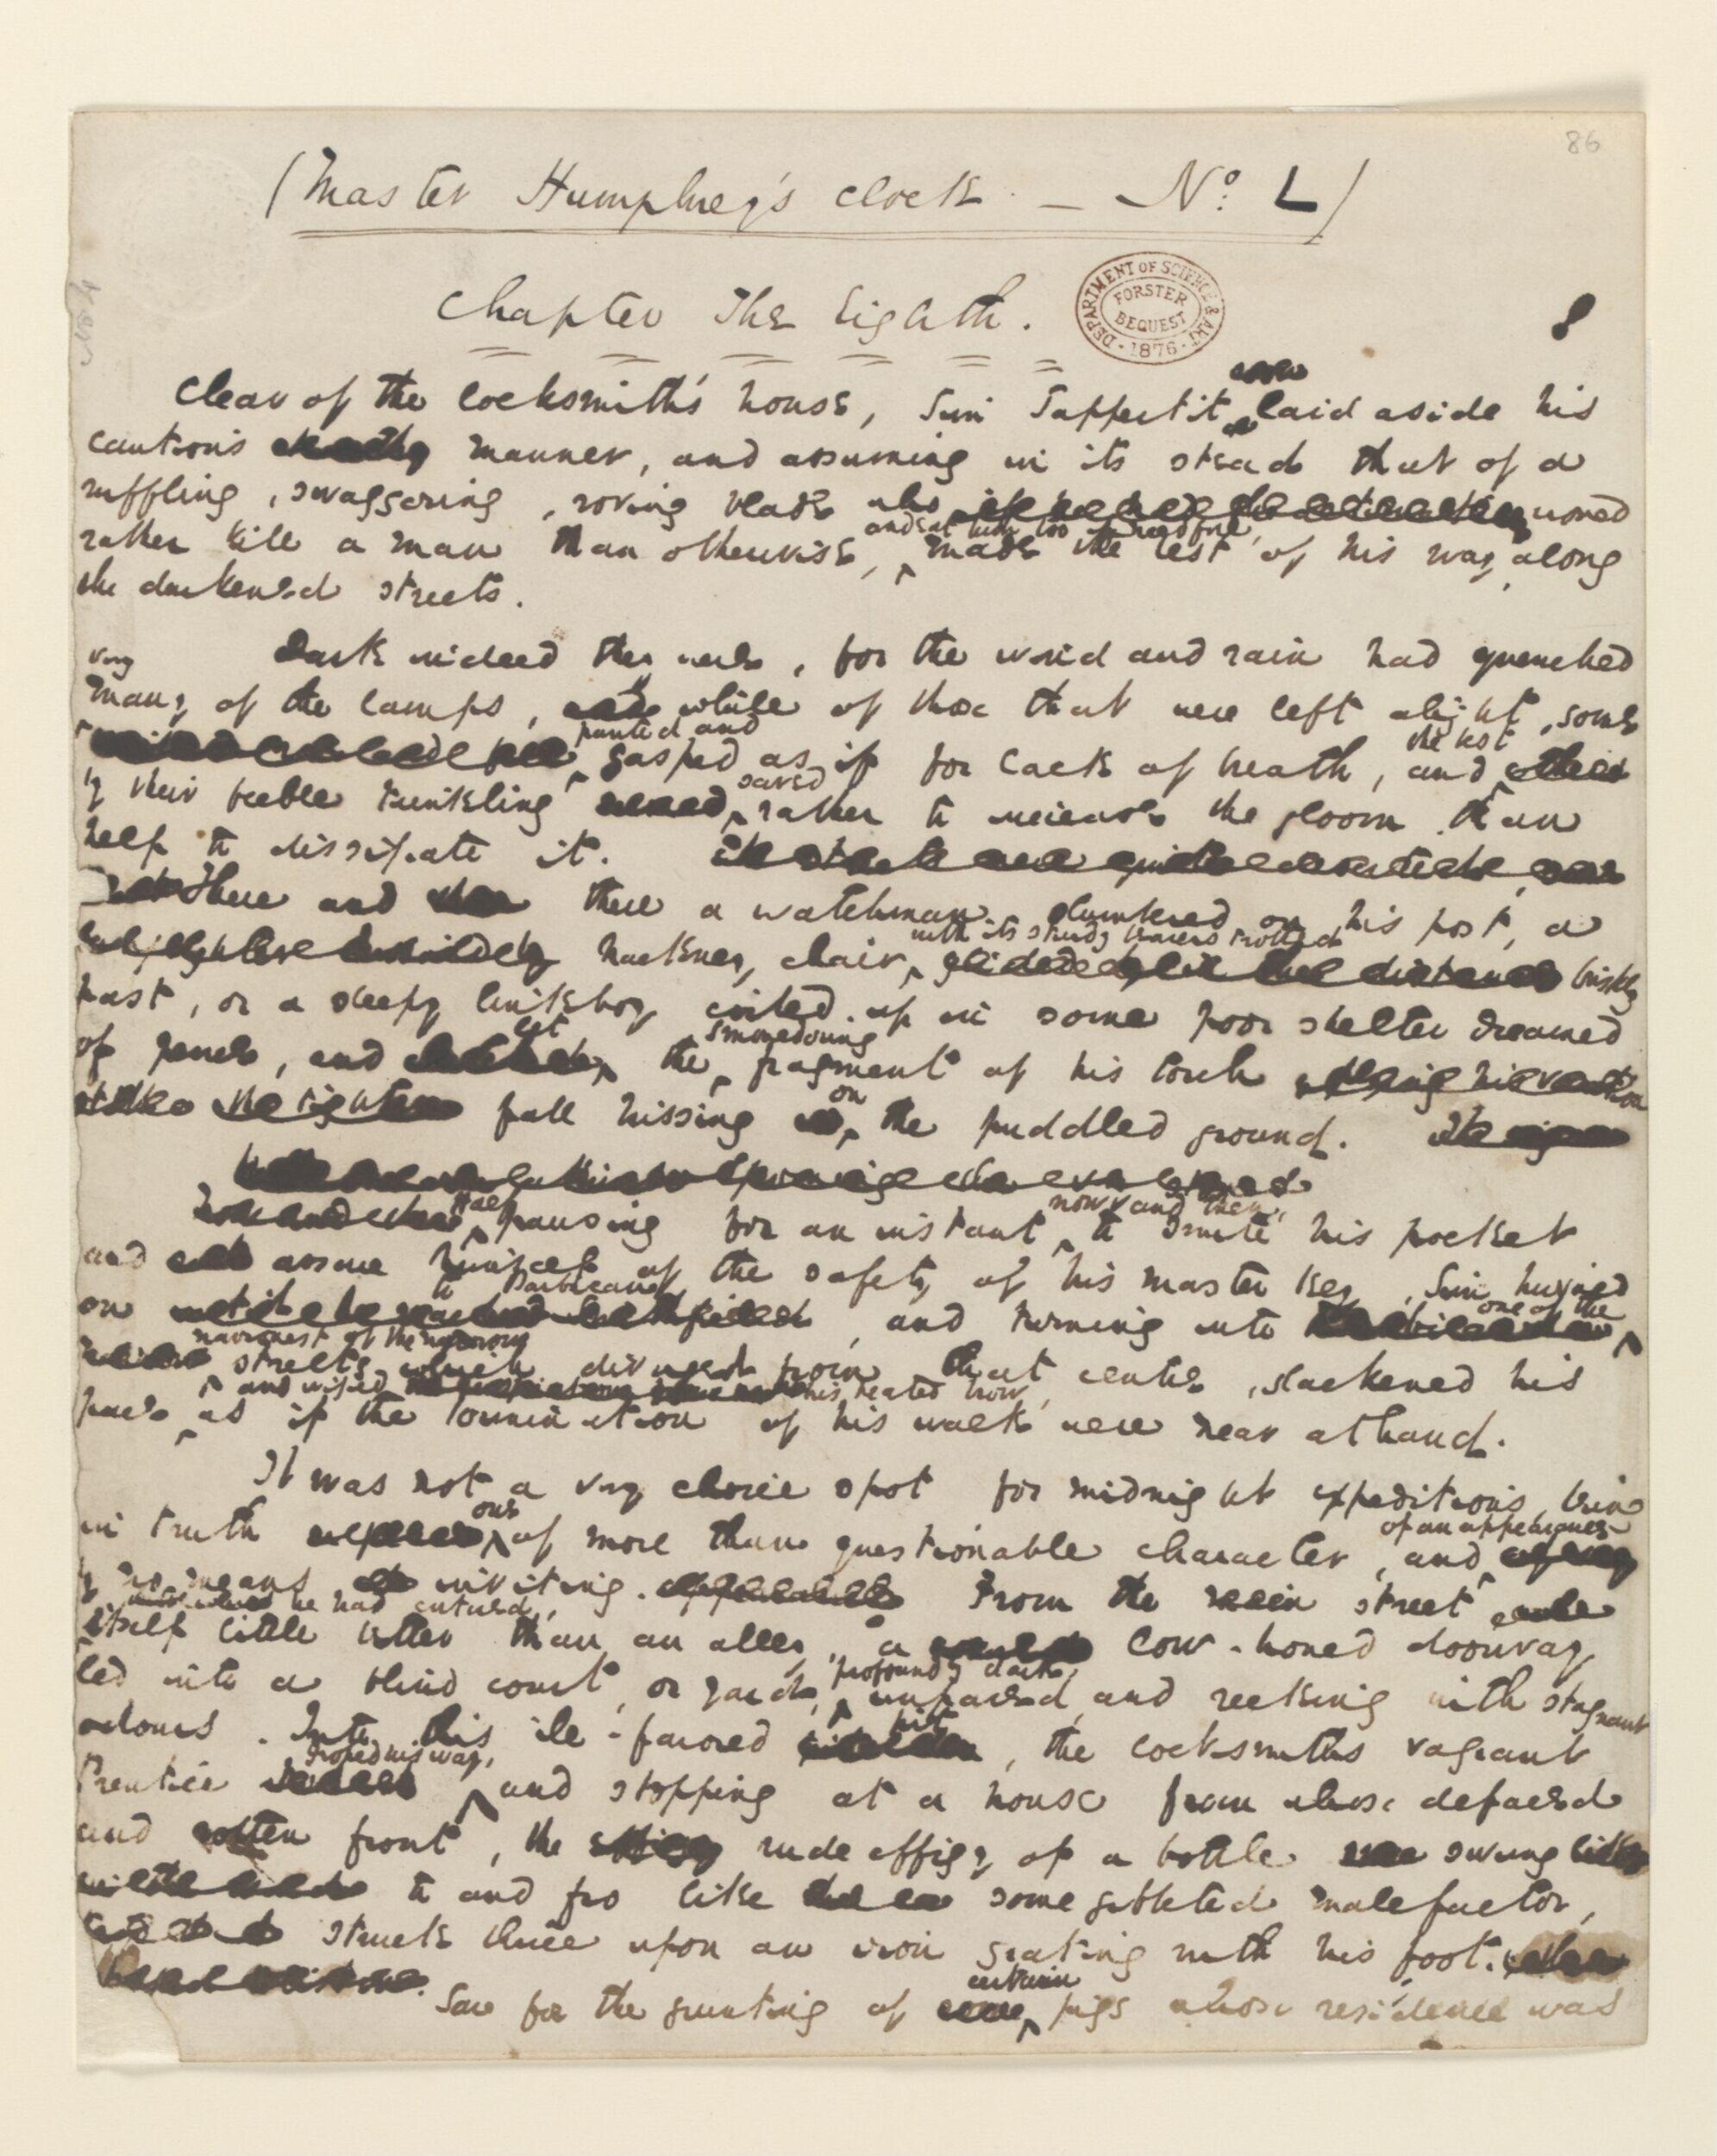 86
(Master Humphrey's Clock. — No. L)
Chapter The Eighth.
DEPARTMENT OF SCIENCE & ART
FORSTER BEQUEST
1876
8
Clear of the locksmith's house, Sim Tappertit laid aside his
cautious manner, and assuming in its stead that of a
ruffling, swaggering, roving blade who would
and eat him too if needful,
rather kill a man than otherwise, made the best of his way along
the darkened streets.
very
Dark indeed they were, for the wind and rain had quenched
many of the lamps, while of those that were left alight, some
panted and
the rest
gasped as if for lack of breath, and
served
by their feeble twinkling rather to increase the gloom than
help to dissipate it.
Here and there a watchman slumbered on his post, a
with its sturdy bearers trotted
hackney chair, briskly
past, or a sleepy linkboy coiled up in some poor shelter dreamed
let
smouldering
of and the fragment of his torch
on
fall hissing the puddled ground.
Half
now and then,
pausing for an instant to smite his pocket
and assure himself of the safety of his master key, Sim hurried
to Barbican
one of the
on, and turning into
narrowest of the narrow
streets which diverged from that centre, slackened his
and wiped his heated brow,
pace as if the termination of his walk were near at hand.
It was not a very choice spot for midnight expeditions, being
one
of an appearance
in truth of more than questionable character, and
by no means inviting. From the main street
he had entered,
itself little better than an alley, a low-browed doorway
led into a blind court, or yard,
profoundly dark,
unpaved, and reeking with stagnant
odours. Into this ill-favored
pit
, the locksmiths vagrant
groped his way,
Prentice and stopping at a house from whose defaced
and rotten front, the rude effigy of a bottle swung
to and fro like some gibbeted malefactor,
struck thrice upon an iron grating with his foot.
certain
Save for the grunting of pigs whose residence was